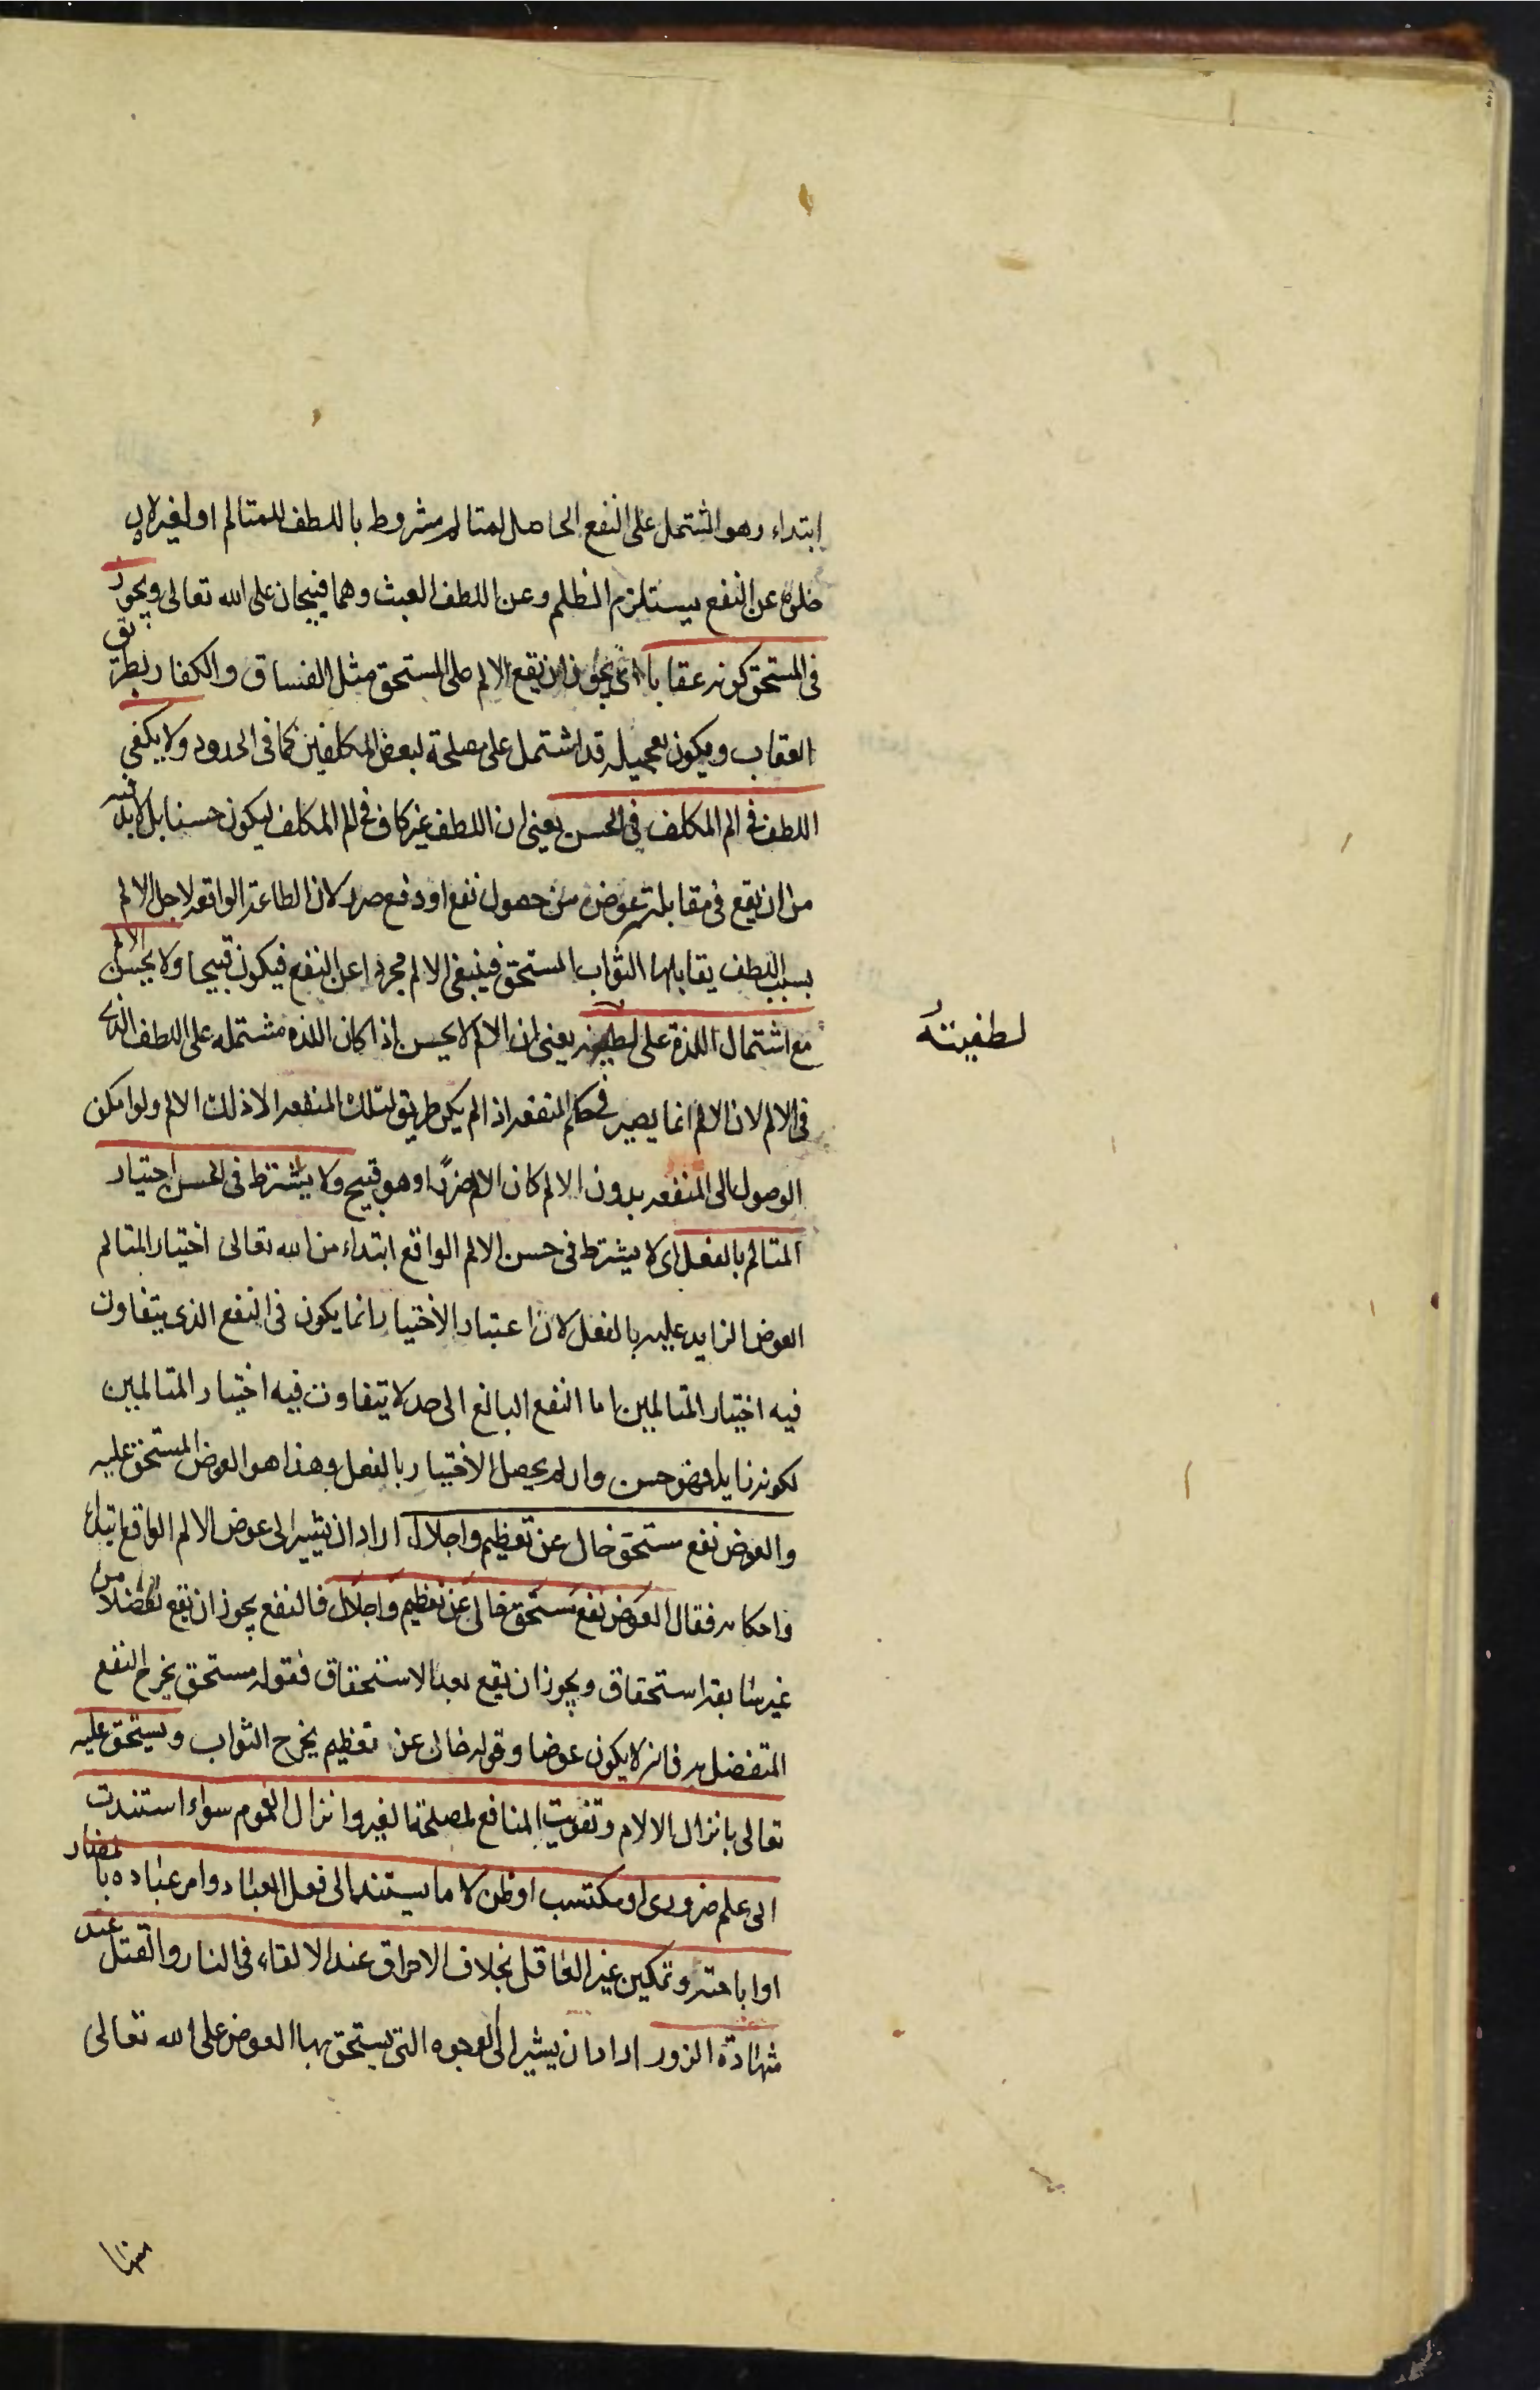 ابتداء وهو المشتمل على النفع الحاصل لمتالم مشروط باللطف للمتالم او لغيره لان
خلوه عن النفع يستلزم الظلم وعن اللطف العبث وهما قبيحان على الله تعالى ويجوز
فى المستحق كونه عقابا اى يجوز ان يقع الالم على المستحق مثل الفساق والكفار بطريق
العقاب ويكون تعجيله قد اشتمل على مصلحة لبعض المكلفين كما فى الحدود ولا يكفى
اللطف فى الم المكلف فى الحسن يعنى ان اللطف غير كاف فى الم المكلف ليكون حسنا بل لابد فيه
من ان يقع فى مقابلته عوض من حصول نفع او دفع ضرر لان الطاعة الواقعه لاجل الالم
بسبب اللطف يقابلها الثواب المستحق فينبغى الالم مجردا عن النفع فيكون قبيحا ولا يحسن الالم
مع اشتمال اللذة على لطفيته يعنى ان الالم لا يحسن اذا كان اللذه مشتمله على اللطف الذى
لطفيته
فى الالم لان الالم انما يصير فى حكم المنفعه اذا لم يكن طريق لتلك المنفعه الا ذلك الالم ولو امكن
الوصول الى المنفعه بدون الالم كان الالم ضررا وهو قبيح ولا يشترط فى الحسن اختيار
المتالم بالفعل اى لا يشترط فى حسن الالم الواقع ابتداء من الله تعالى اختيار المتالم
العوض الزايد عليه بالفعل لان اعتبار الاختيار انما يكون فى النفع الذى يتفاوت
فيه اختيار المتالمين اما النفع البالغ الى حد لا يتفاوت فيه اختيار المتالمين
لكونه زايدا فهو حسن وان لم يحصل الاختيار بالفعل وهذا هو العوض المستحق عليه
والعوض نفع مستحق خال عن تعظيم واجلال اراد ان يشير الى عوض الالم الواقع ابتداء
واحكامه فقال العوض نفع مستحق خالى عن تعظيم واجلال فالنفع يجوز ان يقع تفضلا من
غير سابقه استحقاق ويجوز ان يقع بعد الاستحقاق فقوله مستحق يخرج النفع
المتفضل به فانه لا يكون عوضا وقوله خال عن تعظيم يخرج الثواب ويستحق عليه
تعالى بانزال الالام وتفويت المنافع لمصلحة الغير وانزال الغموم سواء استندت
الى علم ضرورى او مكتسب او ظن لا ما يستند الى فعل العباد وامر عباده بالمضار
او اباحته وتمكين غير العاقل بخلاف الاحراق عند الالقاء فى النار والقتل عند
شهادة الزور اراد ان يشير الى الوجوه التى يستحق بها العوض على الله تعالى